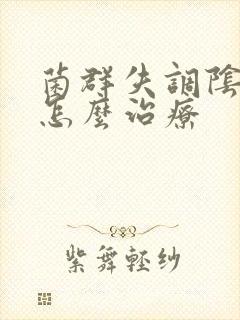 菌群失調陰
怎麼治療
紫舞輕紗